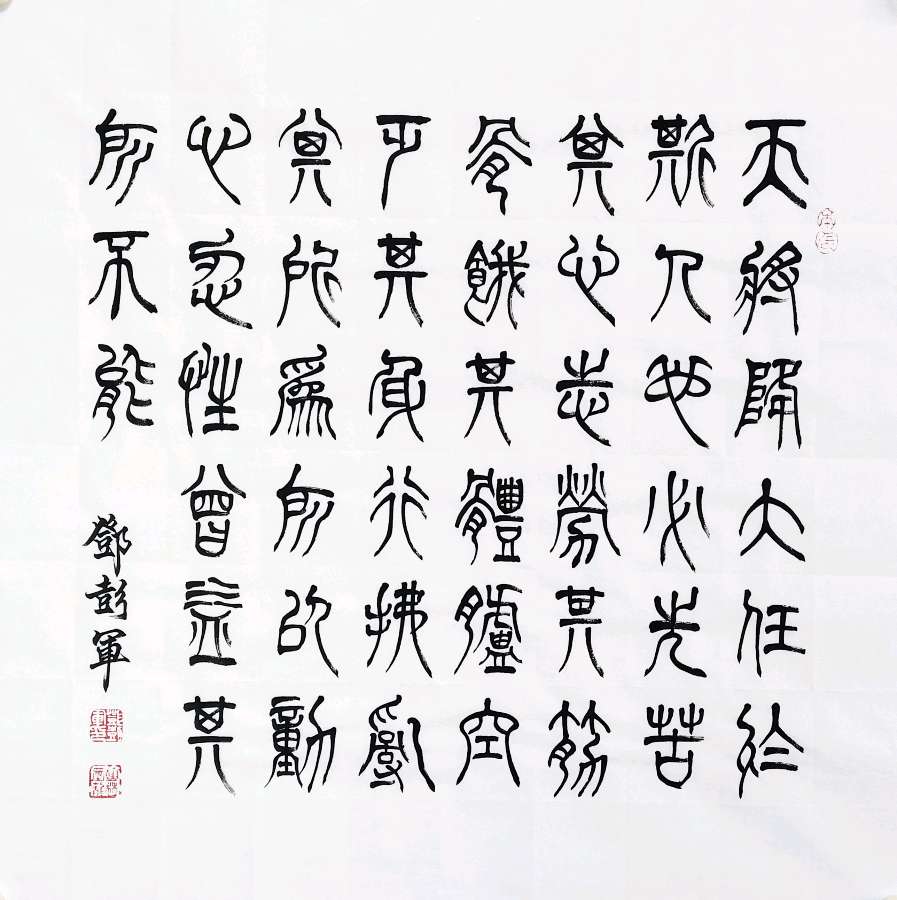 天將降大任於
斯人也必先苦
其心志勞其筋
骨餓其體膚空
乏其身行拂亂
其所爲所以動
心忍性曾益其
所不能
鄧彭軍